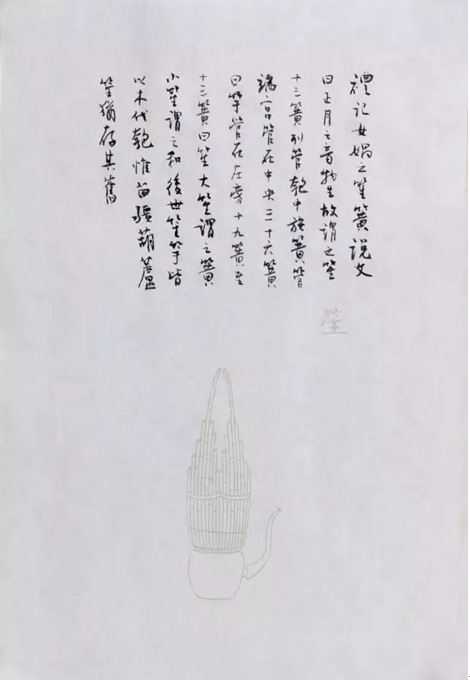 禮記女媧之笙簧説文
曰正月之音物生故謂之笙
十三簧列管匏中施簧管
端宫管在中央三十六簧
曰竽管在左旁十九簧至
十三簧曰笙大笙謂之簧
小笙謂之和後世笙竽皆
以木代匏惟苗彊葫蘆
笙猶存其舊
笙